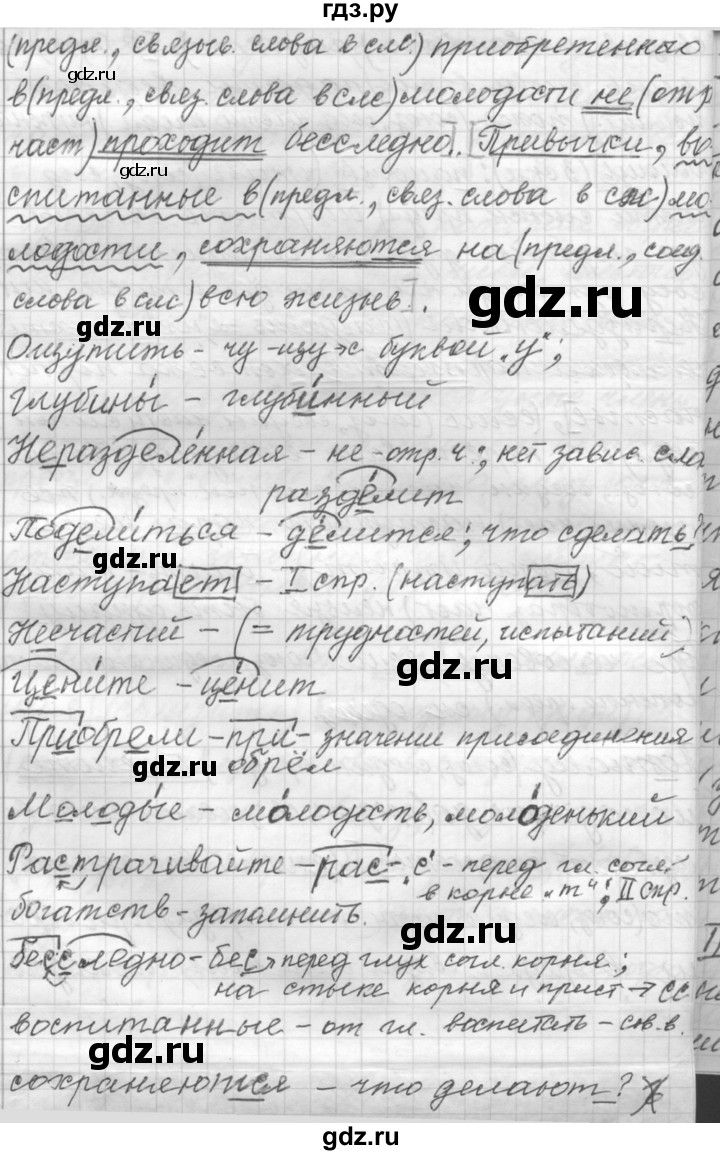 гдз.ру
(предл., связыв. слова в слс) приобретенное
в (предл., связ. слова в слс) молодости не (отр
част) проходит бесследно]. [Привычки, во
спитанные в (предл., связ. слова в слс) мо
лодости, сохраняются на (предл., соед.
слова в слс) всю жизнь].
gdz.ru
gdz.ru
Ощутить - чу - щу → с буквой „у“;
глубины́ - глуби́нный
gdz.ru
Неразделённая - не - отр. ч.; нет завис. сло
разде́лит
Поделиться - де́лится; что сделать?
gdz.ru
Наступает - I спр. (наступать)
Несчастий - (= трудностей, испытаний)
gdz.ru
Цени́те - це́нит
Приобрели - при- значении присоединения
gdz.ru
обрёл
Молоды́е - мо́лодость, моло́денький
Растрачивайте - рас- „с“ - перед гл. согл.
в корне „т“; II спр.
богатств - запомнить.
gdz.ru
бесследно - бес → перед глух согл. корня;
на стыке корня и прист → сс
воспитанные - от гл. воспитать - сов. в.
gdz.ru
сохраняются - что делают?
gdz.ru
gdz.ru